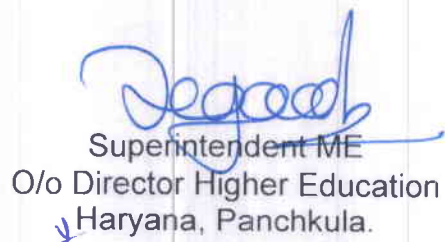 Superintendent ME
O/o Director Higher Education
Haryana, Panchkula.